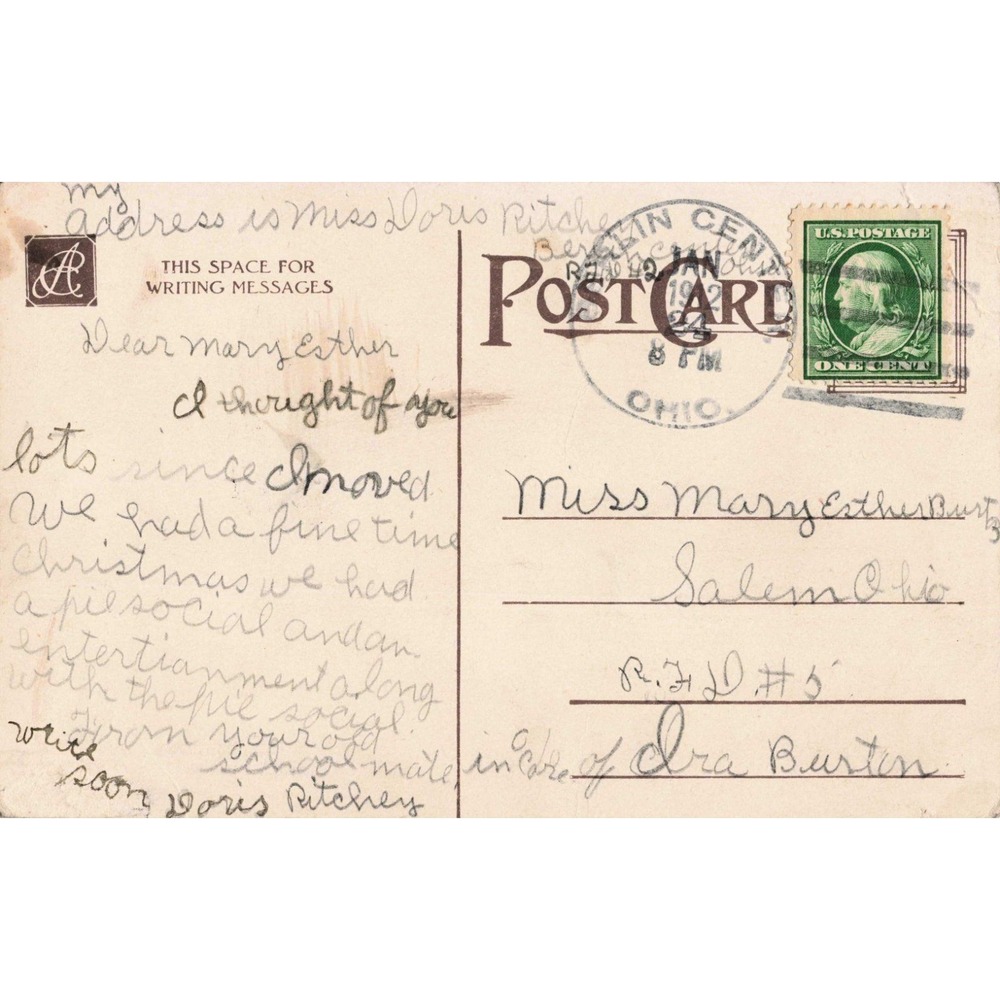 my
address is Miss Doris Ritchey
Berlin Center
R.F.D. #2
THIS SPACE FOR
WRITING MESSAGES
Dear Mary Esther
I thought of you
lots since I moved
We had a fine time
Christmas we had
a pie social and an
entertianment along
with the pie social
From your old
school mate,
Doris Ritchey
write
soon
POST CARD
BERLIN CENTER
JAN
24
1912
8 PM
OHIO.
U.S. POSTAGE
ONE CENT
Miss Mary Esther Burt
Salem Ohio
R.F.D. #5
in Care of Ira Burton